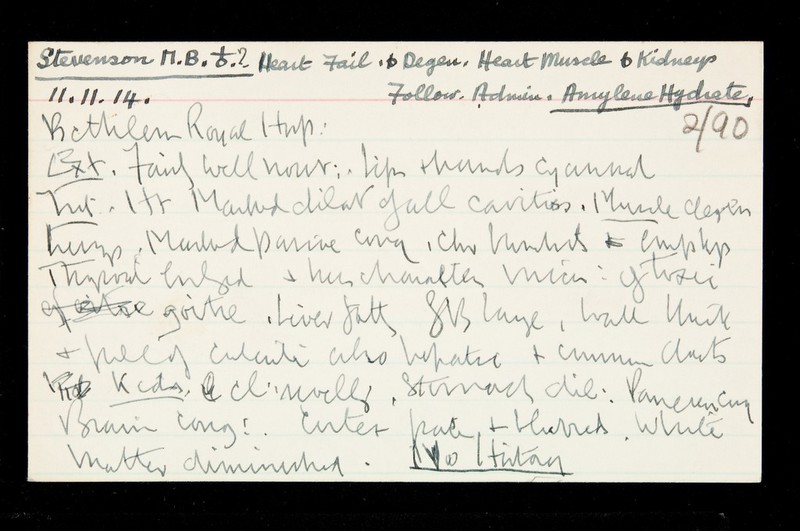 Stevenson M.B. Heart Fail. & Degen. Heart Muscle & Kidneys
11.11.14. Follow. Admin. Amylene Hydrate.
2/90
Bethlem Royal Hosp:
Ext. Fairly well nour:. Lips & hands cyanosed
Int. Ht Marked dilat of all cavities. Muscle degen
Lungs. Marked passive cong. Chr bronchitis & emphys
Thyroid enlged & has characters of toxic
goitre. Liver fatty GB large, wall thick
& full of calculi also hepatic & common ducts
Kids. Stomach dil:. Pancreas cong
Brain cong:. Cortex pale & blurred. White
matter diminished. No History